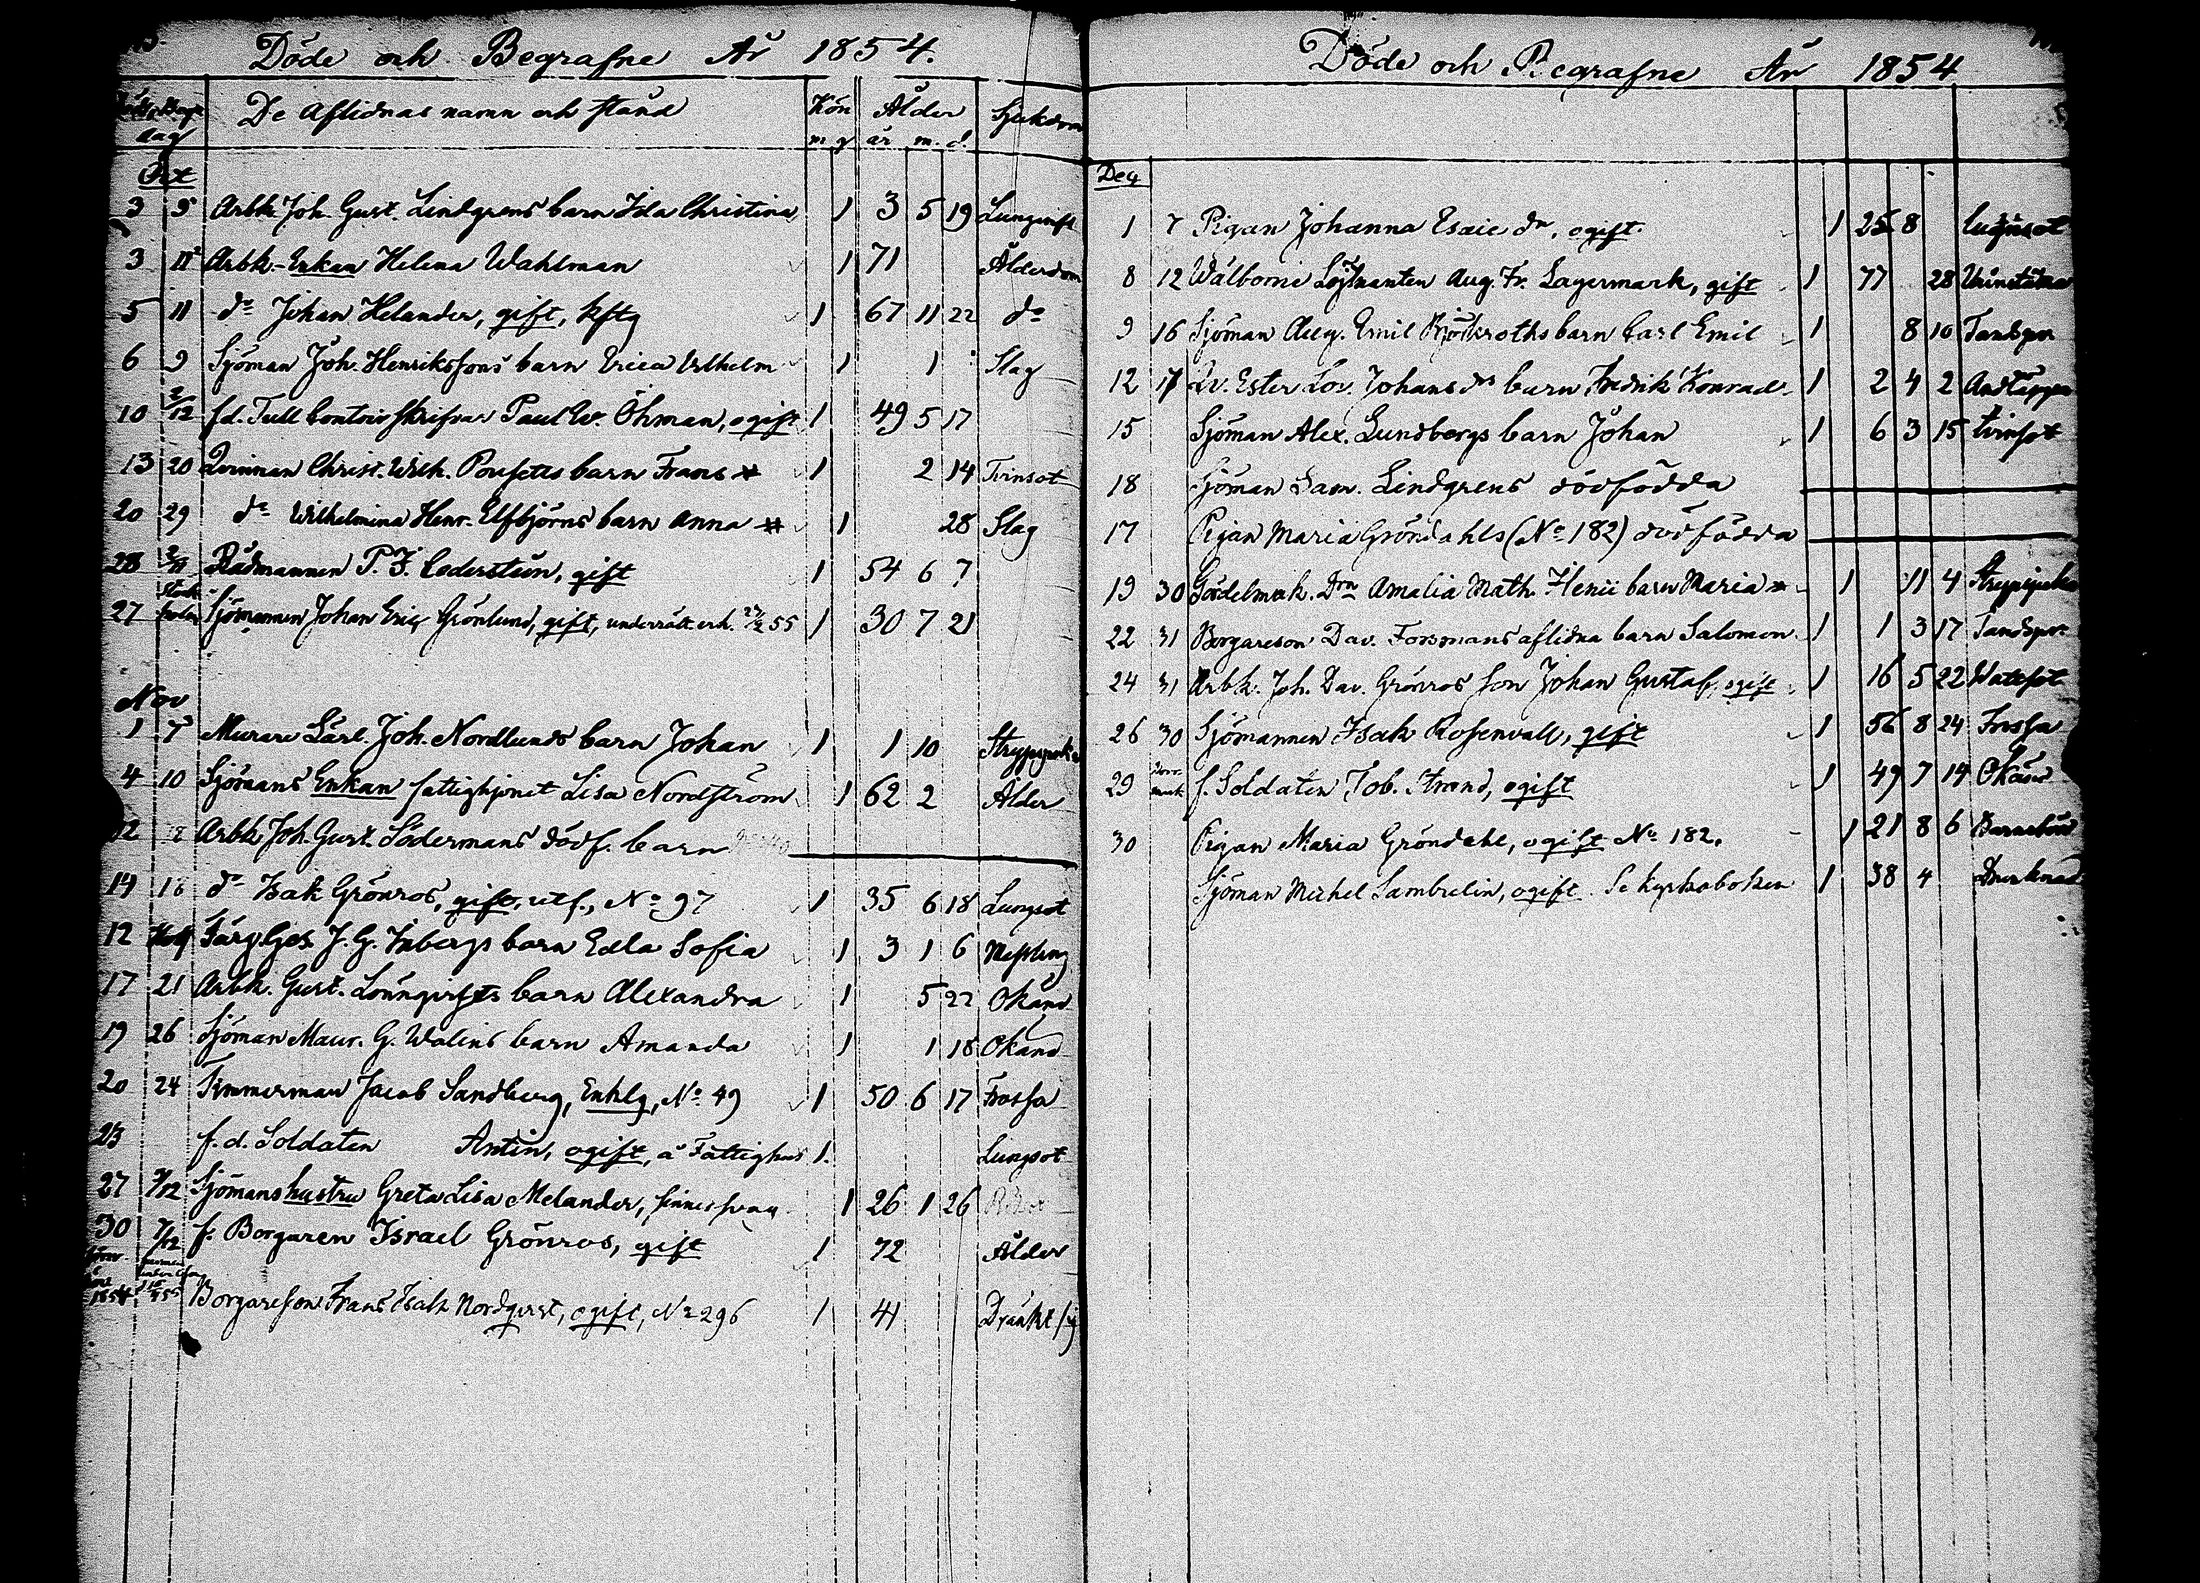 Döde och Begrafne År 1854.
dag De Aflidnas namn och stånd Kön Ålder Sjukdom
m. q. år m. d.
Oct
3 9 Arbk Joh. Gust. Lindgrens barn Ida Christina 1 3 5 19
3 Arbk-Enkan Helena Wahlman 1 71 Ålderdom
5 11 do Johan Helander, gift, 1 67 11 22 do
6 9 Sjöman Joh. Henrikssons barn Erica Wilhelm 1 1 Slag
10 3/12 fd. Tull Contoirskrifvar Paul W. Öhman, ogift 1 49 5 17
13 20 Qvinnan Christ. Wilh. barn Frans # 1 2 14 Tvinsot
20 29 do Wilhelmina Henr. Elfbjörns barn Anna # 1 28 Slag
28 Rådmannen P. J. Cederstein, gift 1 54 6 7
27 Sjömannen Johan Eric Grönlund, gift, underrätt. erh. 55 1 30 7 21
Nov
1 7 Murare Lärl. Joh. Nordlunds barn Johan 1 1 10 Strypsjuka
4 10 Sjömans Enkan fattighjonet Lisa Nordström 1 62 2 Ålder
12 18 Arbk Joh. Gust. Södermans dödf. barn
14 18 do Isak Grönros, gift, utf., No 97 1 35 6 18 Lungsot
12 Färg. Ges. J. G. barn Edla Sofia 1 3 1 6 Messling
17 21 Arbk. Gust. Lönnqvists barn Alexandra 1 5 22 Okänd
19 26 Sjöman Maur. G. Walins barn Amanda 1 1 18 Okänd
20 24 Timmerman Jacob Sandberg, Enklg, No 49 1 50 6 17 Frossa
23 f.d. Soldaten Antin, ogift, å Fattighus 1. Lungsot
27 3/12 Sjömanshustru Greta Lisa Melander, 1 26 1 26
30 7/12 f. Borgaren Israel Grönros, gift 1 72 Ålder
1854 Borgareson Frans Isak Nordqvist, ogift, No 296 1 41 Dränkt sig
Döde och Begrafne År 1854
Dec
1 7 Pigan Johanna Esaie dr, ogift. 1 25 8 Lungsot
8 12 Wälborne Löjtnanten Aug. Fr. Lagermark, gift 1 77 28
9 16 Sjöman Aug. Emil Björkroths barn Carl Emil 1 8 10 Tandspr
12 17 Qv. Ester Lov. Johans dr barn Fredrik Konrad 1 2 4 2 Andtäppa
15 Sjöman Alex. Lundbergs barn Johan 1 6 3 15 tvinsot
18 Sjöman Sam. Lindgrens dödfödda
17 Pigan Maria Gröndahls (No 182) dödfödda
19 30 Gördelmak. Drn Amalia Math. barn Maria # 1 11 4 Strypsjuka
22 31 Borgareson Dav. Forsmans aflidna barn Salomon 1 1 3 17 Tandspr.
24 31 Arbk. Joh. Dav. Grönros son Johan Gustaf, ogift 1 16 5 22 Watusot
26 30 Sjömannen Isak Rosenvall, gift 1 56 8 24 Frossa
29 f. Soldaten Tob. Strand, ogift 1 49 7 14 Okänd
30 Pigan Maria Gröndahl, ogift No 182. 1 21 8 6 Barnsbörd
Sjöman Michel Sambrelin, ogift. Se kyrkoboken 1 38 4 Drunknad